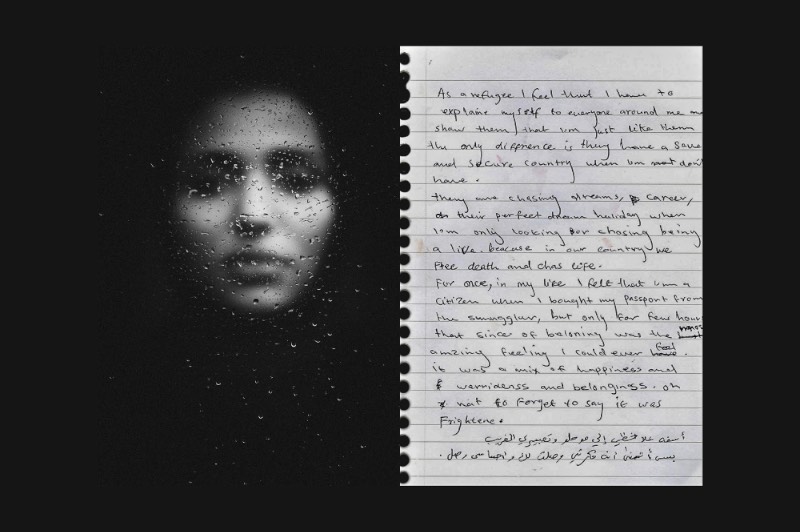 As a refugee I feel that I have to
explaine myself to everyone around me
show them that I'm just like them
the only diffrence is they have a save
and secure country when I'm don't
have.
they are chasing dreams, career,
their perfect dream holiday when
I'm only looking or chasing being
a life. because in our country we
Flee death and chas life.
For once, in my life I felt that I'm a
citizen when I bought my passport from
the smugglar, but only for few hours
that sincer of beloning was the
amzing feeling I could ever feel
it was a mix of happieness and
and belonginess. oh
not to forget to say it was
Frightene.